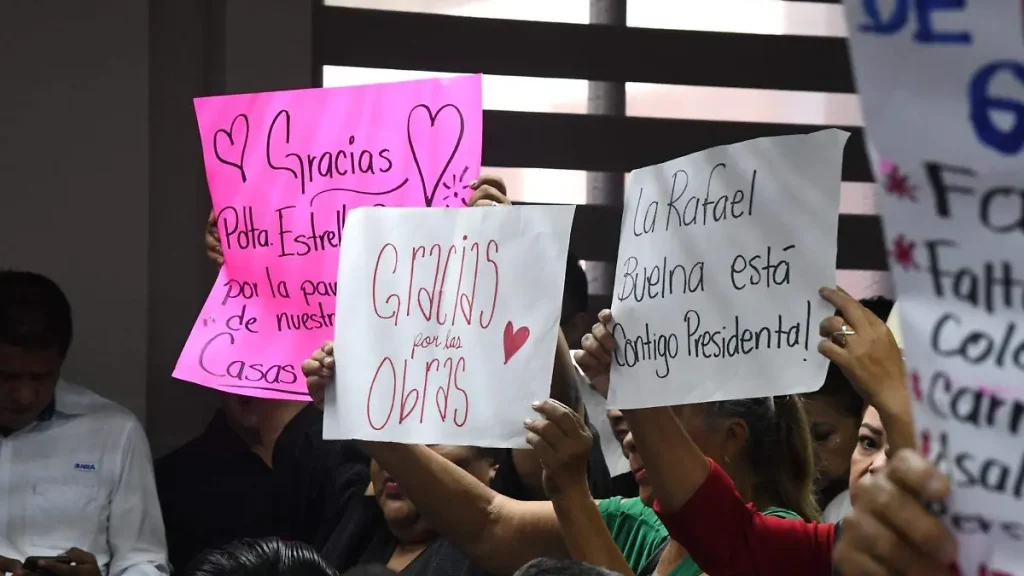 Gracias
Pdta. Estrella
por la
de nuestr
Casas
Gracias
por las
Obras
La Rafael
Buelna está
Contigo Presidenta!
DE
G
Fa
Falt
Colo
Carr